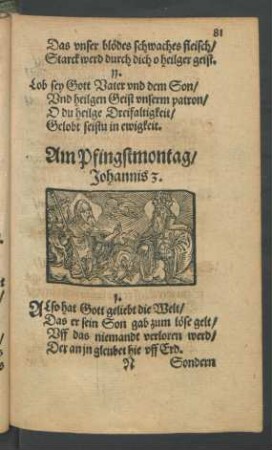 81
Das vnser blödes schwaches fleisch/
Starck werd durch dich o heilger geist.
11.
Lob sey Gott Vater vnd dem Son/
Vnd heilgen Geist vnserm patron/
O du heilge Dreifaltigkeit/
Gelobt seistu in ewigkeit.
Am Pfingstmontag/
Johannis 3.
1.
ALso hat Gott geliebt die Welt/
Das er sein Son gab zum löse gelt/
Vff das niemandt verloren werd/
Der an jn gleubet hie vff Erd.
N Sondern